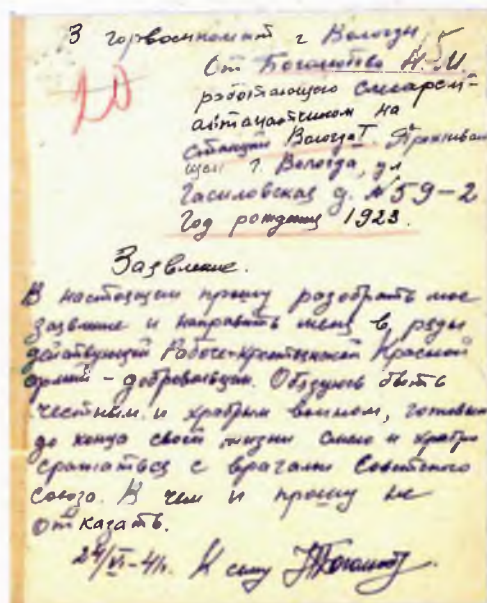 В горвоенкомат г Вологды
20
От Н. М.
работающего слесарем-
автоматчиком на
станции Вологда I. Проживаю
щей г. Вологда, ул
Гасиловская д. № 59-2
Год рождения 1923.
Заявление.
В настоящем прошу разобрать мое
заявление и направить меня в ряды
действующей Рабоче-крестьянской Красной
армии - добровольцем. Обязуюсь быть
честным и храбрым воином, готовым
до конца своей жизни смело и храбро
сражаться с врагами Советского
союза. В чем и прошу не
отказать.
24/VI-41г. К сему